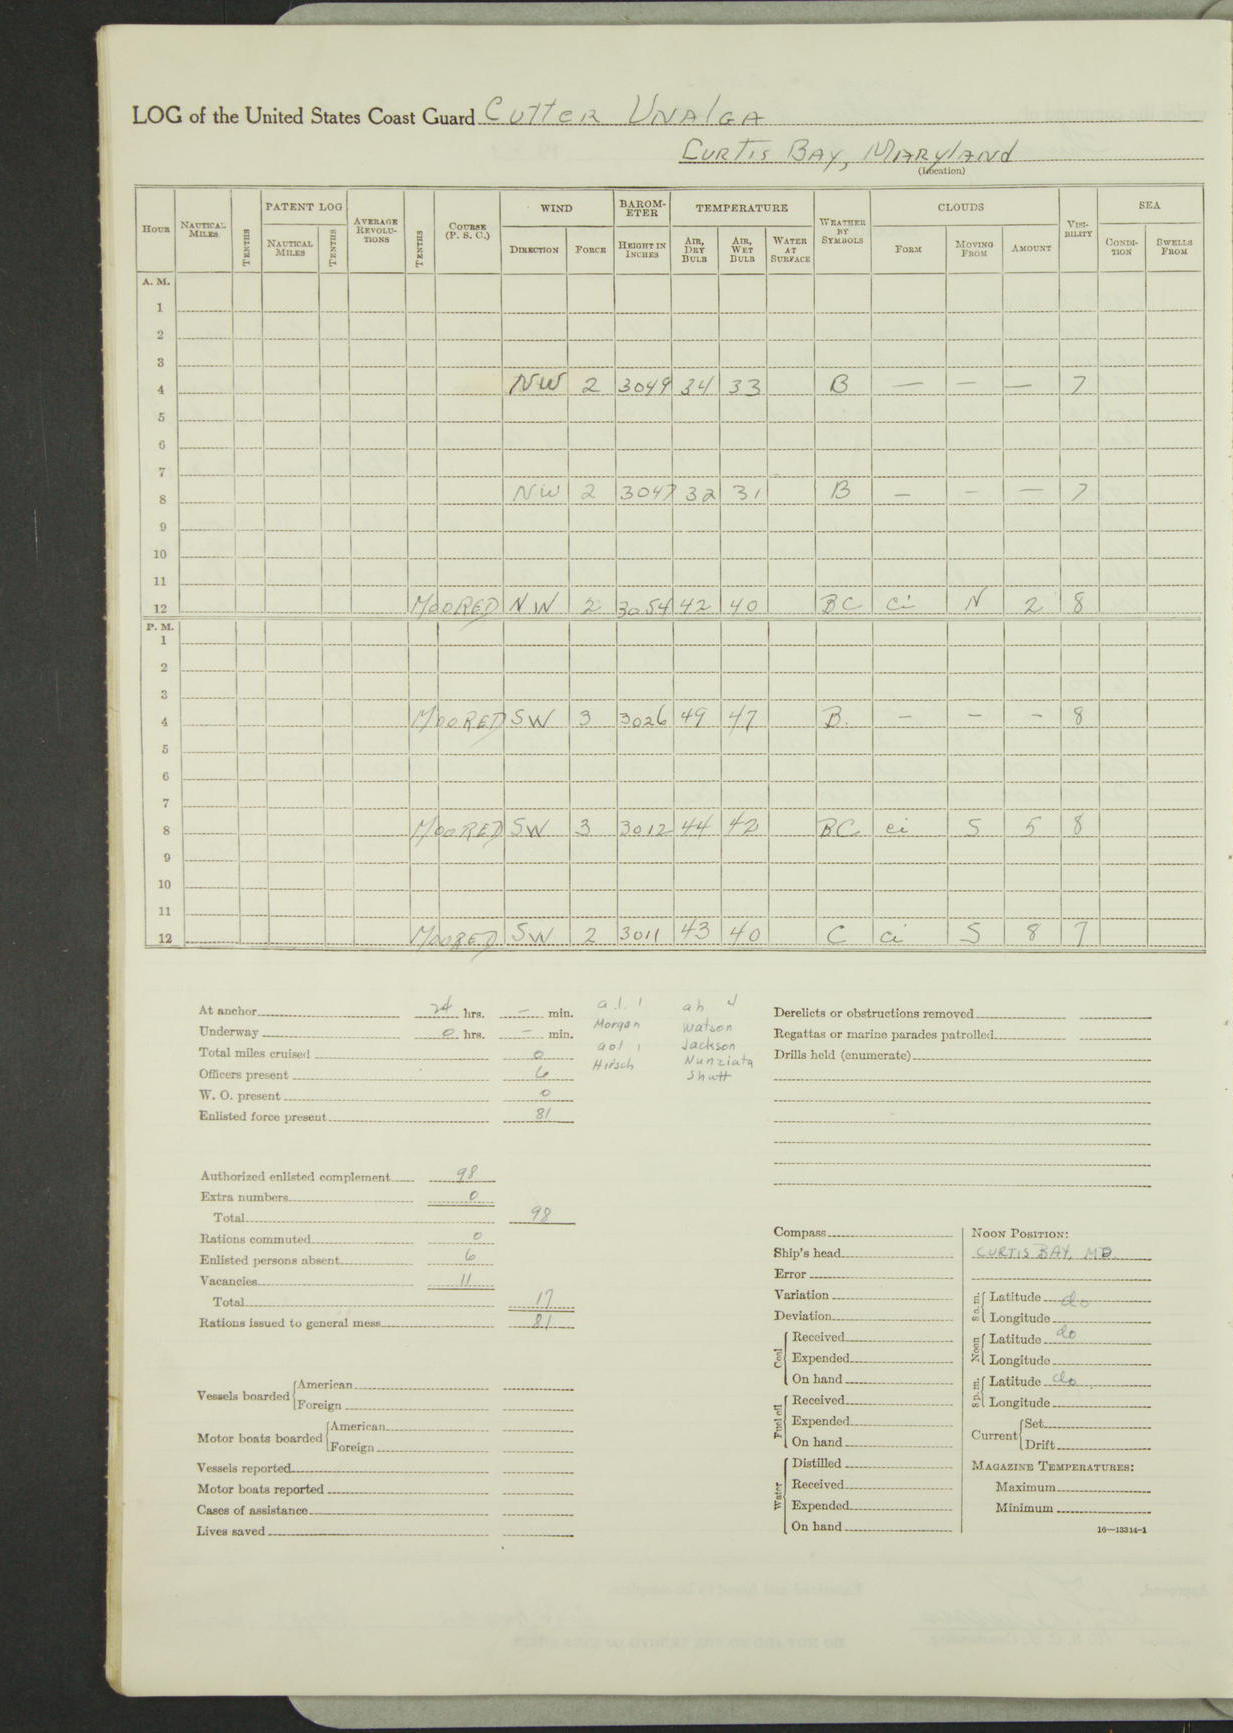 LOG of the United States Coast Guard Cutter Unalga
Curtis Bay, Maryland
(Location)
HOUR NAUTICAL MILES TENTHS PATENT LOG NAUTICAL MILES TENTHS AVERAGE REVOLU-TIONS TENTHS COURSE (P. S. C.) WIND DIRECTION FORCE BAROM-ETER HEIGHT IN INCHES TEMPERATURE AIR, DRY BULB AIR, WET BULB WATER AT SURFACE WEATHER BY SYMBOLS CLOUDS FORM MOVING FROM AMOUNT VISI-BILITY SEA CONDI-TION SWELLS FROM
A. M.
1
2
3
4 NW 2 3049 34 33 B — — — 7
5
6
7
8 NW 2 3047 32 31 B — — — 7
9
10
11
12 MOORED NW 2 3054 42 40 BC ci N 2 8
P. M.
1
2
3
4 MOORED SW 3 3026 49 47 B. — — — 8
5
6
7
8 MOORED SW 3 3012 44 42 BC ci S 5 8
9
10
11
12 MOORED SW 2 3011 43 40 C ci S 8 7
At anchor 24 hrs. — min.
Underway 0 hrs. — min.
Total miles cruised 0
Officers present 6
W. O. present 0
Enlisted force present 81
a.l. 1
Morgan
aol 1
Hirsch
ah 4
Watson
Jackson
Nunziata
Shutt
Authorized enlisted complement 98
Extra numbers 0
Total 98
Rations commuted 0
Enlisted persons absent 6
Vacancies 11
Total 17
Rations issued to general mess 81
Vessels boarded
American
Foreign
Motor boats boarded
American
Foreign
Vessels reported
Motor boats reported
Cases of assistance
Lives saved
Derelicts or obstructions removed
Regattas or marine parades patrolled
Drills held (enumerate)
Compass
Ship's head
Error
Variation
Deviation
Coal
Received
Expended
On hand
Fuel oil
Received
Expended
On hand
Water
Distilled
Received
Expended
On hand
NOON POSITION:
CURTIS BAY, MD
8 a. m. Latitude do
Longitude
Noon Latitude do
Longitude
8 p. m. Latitude do
Longitude
Current
Set
Drift
MAGAZINE TEMPERATURES:
Maximum
Minimum
16—13314-1